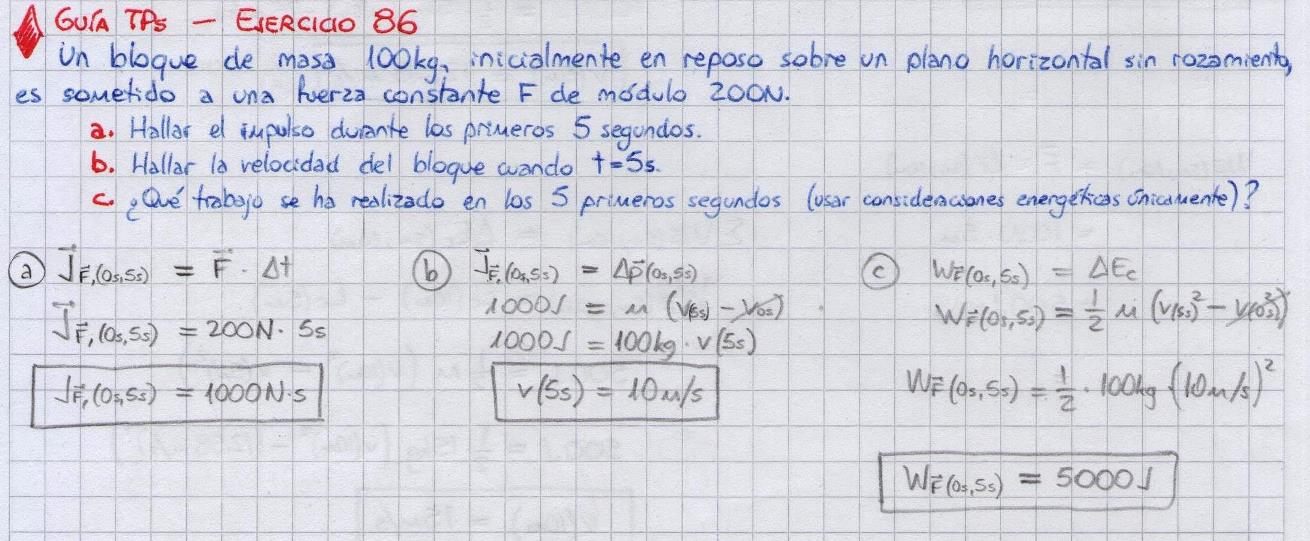 GUÍA TPs — EJERCICIO 86
Un bloque de masa 100kg, inicialmente en reposo sobre un plano horizontal sin rozamiento,
es sometido a una fuerza constante F de módulo 200N.
a. Hallar el impulso durante los primeros 5 segundos.
b. Hallar la velocidad del bloque cuando t=5s.
c. ¿Qué trabajo se ha realizado en los 5 primeros segundos (usar consideraciones energéticas únicamente)?
a J⃗F⃗,(0s,5s) = F⃗ · Δt
J⃗F⃗,(0s,5s) = 200N · 5s
JF⃗,(0s,5s) = 1000N·s
b J⃗F⃗,(0s,5s) = Δp⃗(0s,5s)
1000J = m (v(5s) – v(0s))
1000J = 100kg · v(5s)
v(5s) = 10m/s
c WF⃗(0s,5s) = ΔEc
WF⃗(0s,5s) = 1/2 m (v(5s)² – v(0s)²)
WF⃗(0s,5s) = 1/2 · 100kg (10m/s)²
WF⃗(0s,5s) = 5000J